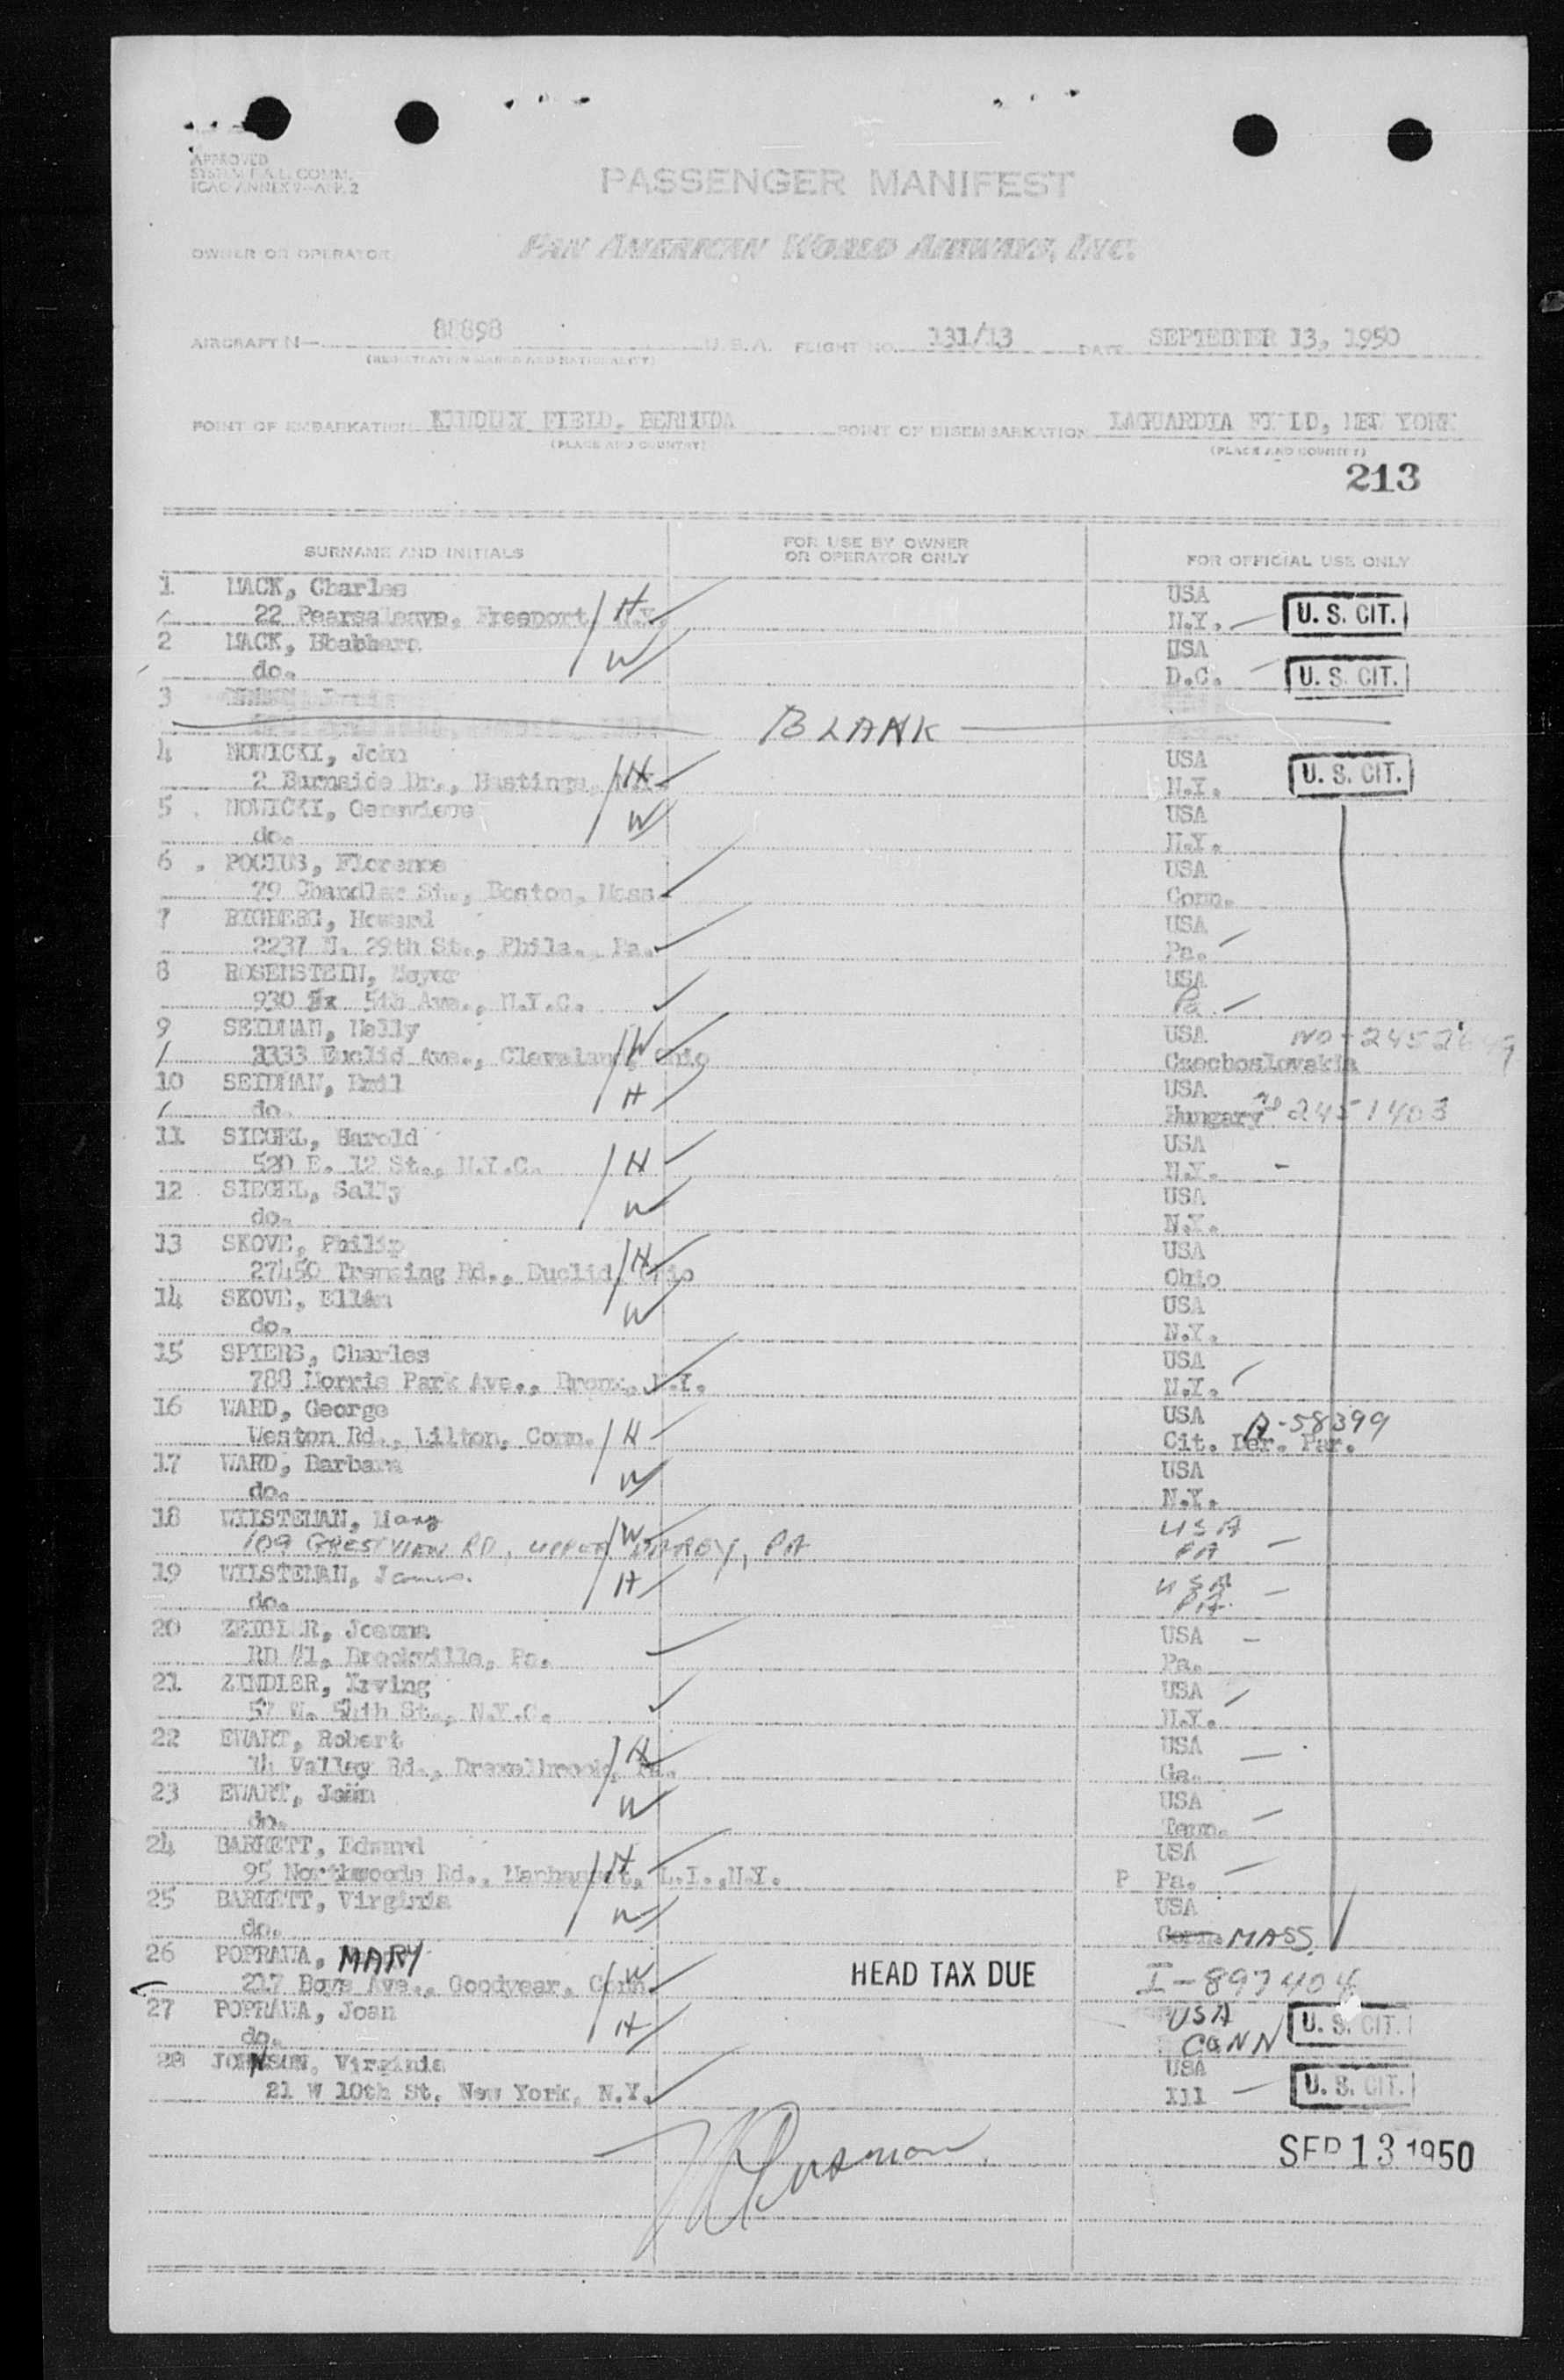 APPROVED
SYSTEM F.A.L. COMM.
ICAO ANNEX 9—APP. 2
PASSENGER MANIFEST
OWNER OR OPERATOR
PAN AMERICAN WORLD AIRWAYS, INC.
AIRCRAFT N— 88898 U.S.A. FLIGHT NO. 131/13 DATE SEPTEBMER 13, 1950
(REGISTRATION MARKS AND NATIONALITY)
POINT OF EMBARKATION KINDLEY FIELD, BERMUDA POINT OF DISEMBARKATION LAGUARDIA FI LD, NEW YORK
(PLACE AND COUNTRY) (PLACE AND COUNTRY)
213
SURNAME AND INITIALS FOR USE BY OWNER OR OPERATOR ONLY FOR OFFICIAL USE ONLY
1 MACK, Charles USA
22 Freeport, N.Y. H N.Y. U. S. CIT.
2 MACK, USA
do. W D.C. U. S. CIT.
3
BLANK
4 NOWICKI, John USA
2 Burnside Dr., Hastings, N.Y. H N.Y. U. S. CIT.
5 NOWICKI, Genevieve USA
do. W N.Y.
6 POCIUS, Florence USA
79 Chandler St., Boston, Mass. Conn.
7 Howard USA
2237 N. 29th St., Phila., Pa. Pa.
8 ROSENSTEIN, Meyer USA
930 5th Ave., N.Y.C. Pa.
9 SEIDMAN, Nelly USA NO-2452649
Euclid Ave., Cleveland, Ohio W Czechoslovakia
10 SEIDMAN, Emil USA
do. H Hungary NO 2451403
11 SIEGEL, Harold USA
520 E. 12 St., N.Y.C. H N.Y.
12 SIEGEL, Sally USA
do. W N.Y.
13 SKOVE, Philip USA
27450 Rd., Euclid, Ohio H Ohio
14 SKOVE, USA
do. W N.Y.
15 SPIERS, Charles USA
788 Morris Park Ave., Bronx, N.Y. N.Y.
16 WARD, George USA A-58399
Weston Rd., Wilton, Conn. H Cit. Der. Par.
17 WARD, Barbara USA
do. W N.Y.
18 WILSTEMAN, Mary USA
109 CRESTVIEW RD, UPPER DARBY, PA W PA
19 WILSTEMAN, James USA
do. H PA.
20 ZEIGLER, Joanna USA
RD #1, Brockville, Pa. Pa.
21 ZINDLER, Irving USA
57 W. 54th St., N.Y.C. N.Y.
22 EWART, Robert USA
Valley Rd., Drexelbrook, Pa. H Ga.
23 EWART, USA
do. W Tenn.
24 BARRETT, Edward USA
95 Northwoods Rd., Manhasset, L.I.,N.Y. H P Pa.
25 BARRETT, Virginia USA
do. W Conn. MASS.
26 POPRAWA, MARY
217 Boys Ave., Goodyear, Conn. W HEAD TAX DUE I-897404
27 POPRAWA, Joan USA
do. H CONN U. S. CIT.
28 JOHNSON, Virginia USA
21 W 10th St. New York, N.Y. Ill U. S. CIT.
SEP 13 1950